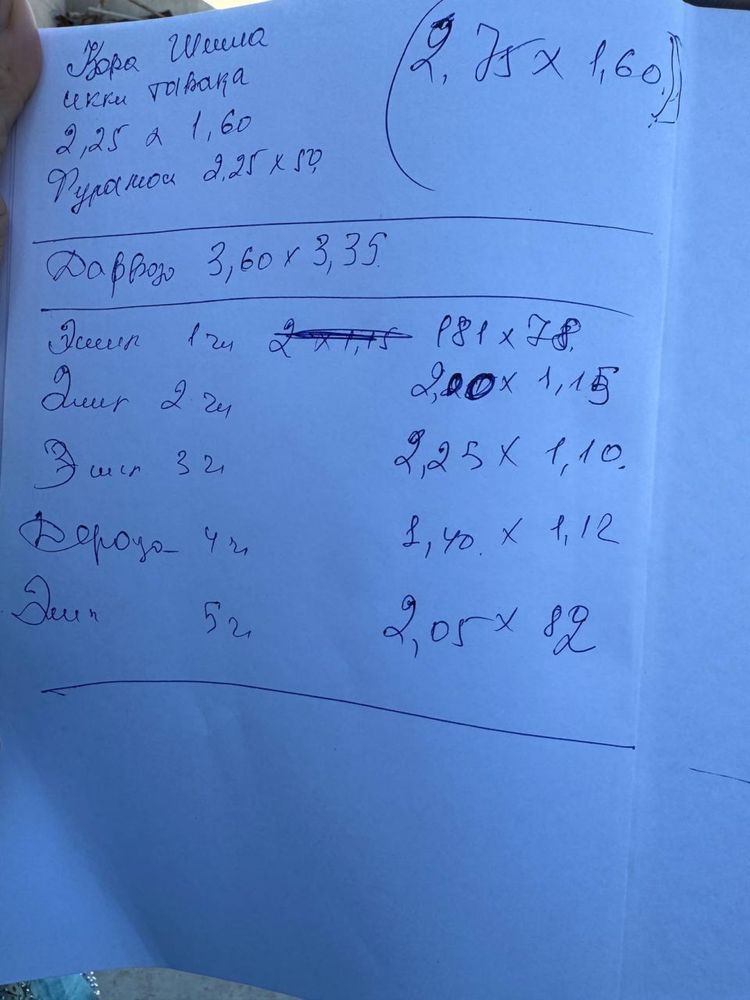 Кора Шиша
икки тавақа
2,25 x 1,60
(2,75 x 1,60)
Фурамои 2,25 x 50
Дарвоза 3,60 x 3,35
Эшик 1 чи 181 x 78
Эшик 2 чи 2,00 x 1,15
Эшик 3 ч 2,25 x 1,10
Дероза 4 ч 1,40 x 1,12
Эшик 5 ч 2,05 x 82